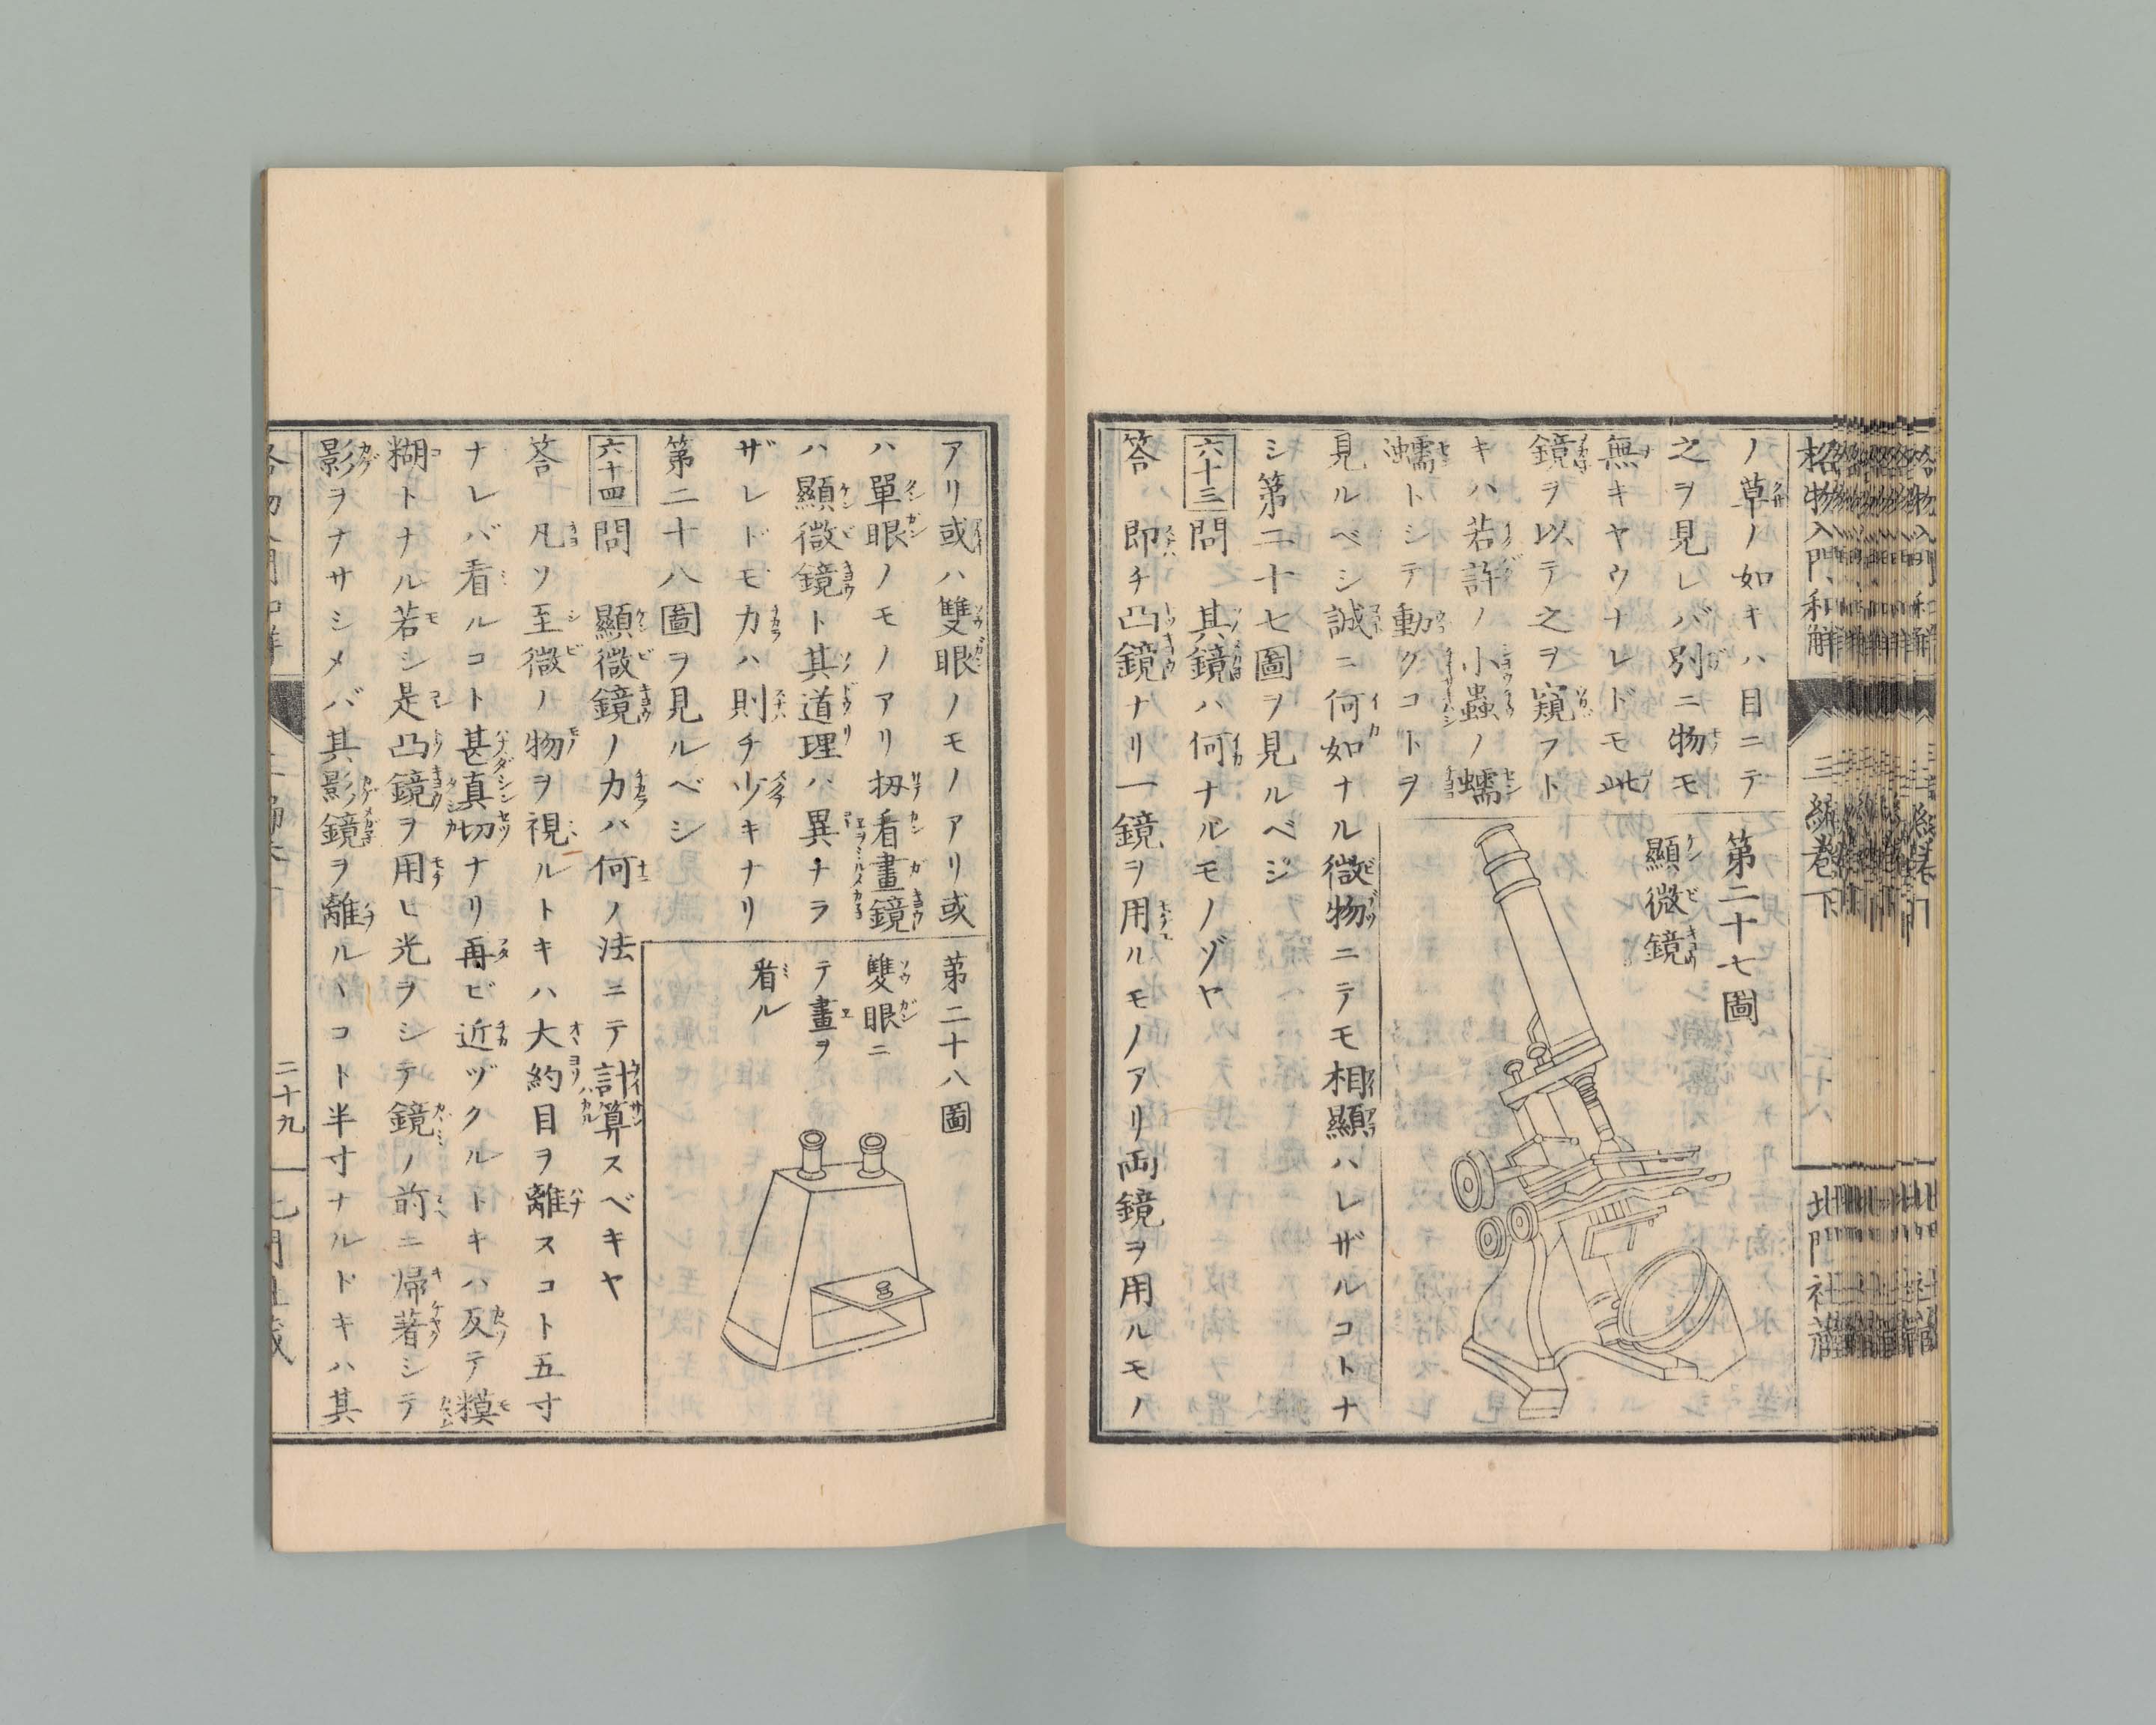 格物入門和解
三編卷下
北門社藏
ノ草ノ如キハ目ニテ
之ヲ見レバ別ニ物モ
無キヤウナレドモ此
鏡ヲ以テ之ヲ窺フト
キハ若許ノ小蟲ノ蠕
蠕トシテ動クコトヲ
第二十七圖
顯微鏡
ケンビキヨウ
見ルベシ誠ニ何如ナル微物ニテモ相顯ハレザルコトナ
シ第二十七圖ヲ見ルベシ
六十三問 其鏡ハ何ナルモノゾヤ
答 即チ凸鏡ナリ一鏡ヲ用ルモノアリ両鏡ヲ用ルモノ
アリ或ハ雙眼ノモノアリ或
ハ單眼ノモノアリ扨看畫鏡
ハ顯微鏡ト其道理ハ異ナラ
ザレドモ力ハ則チ少キナリ
第二十八圖ヲ見ルベシ
第二十八圖
雙眼ニ
テ畫ヲ
看ル
六十四問 顯微鏡ノ力ハ何ノ法ニテ計算スベキヤ
答 凡ソ至微ノ物ヲ視ルトキハ大約目ヲ離スコト五寸
ナレバ看ルコト甚真切ナリ再ビ近ヅクルトキハ反テ糢
糊トナル若シ是凸鏡ヲ用ヒ光ヲシテ鏡ノ前ニ帰著シテ
影ヲナサシメバ其影鏡ヲ離ルヽコト半寸ナルドキハ其
二十九